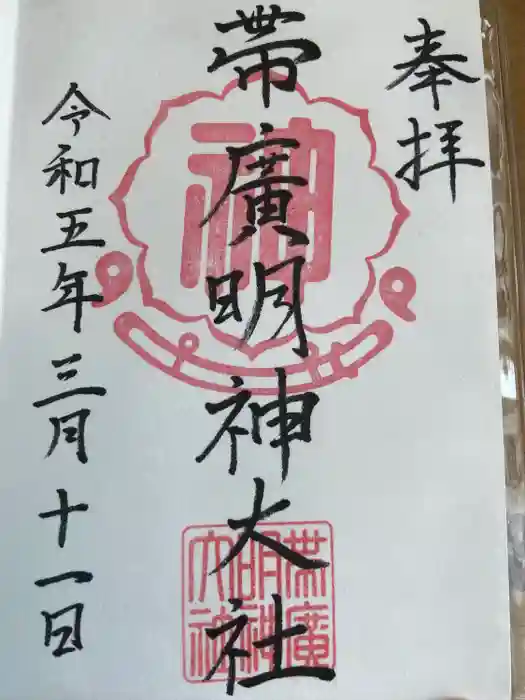 奉拝
帯廣明神大社
令和五年三月十一日
神
帯廣
明神
大社